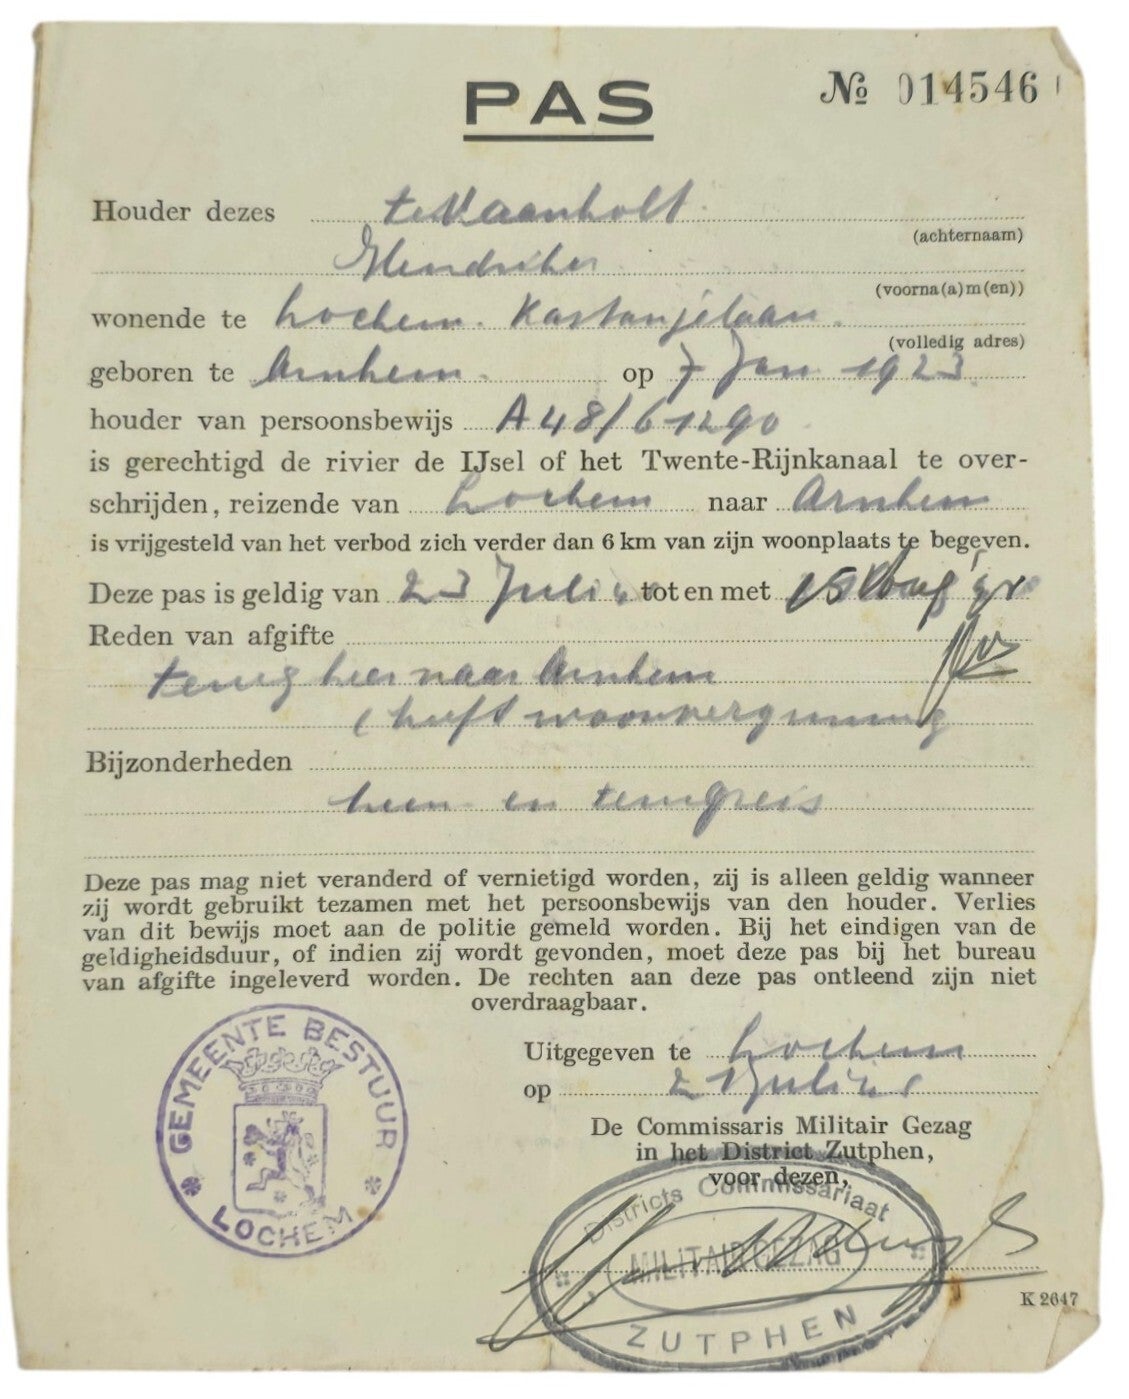 PAS
№ 014546
Houder dezes te Vaanholt.
(achternaam)
Hendrika
(voorna(a)m(en))
wonende te Lochem. Kastanjelaan.
(volledig adres)
geboren te Arnhem. op 7 Jan 1923.
houder van persoonsbewijs A 48/61290
is gerechtigd de rivier de IJsel of het Twente-Rijnkanaal te over-
schrijden, reizende van Lochem naar Arnhem
is vrijgesteld van het verbod zich verder dan 6 km van zijn woonplaats te begeven.
Deze pas is geldig van 23 Juli tot en met 15
Reden van afgifte
terug naar Arnhem
(heeft woonvergunning
Bijzonderheden
heen- en terugreis
Deze pas mag niet veranderd of vernietigd worden, zij is alleen geldig wanneer
zij wordt gebruikt tezamen met het persoonsbewijs van den houder. Verlies
van dit bewijs moet aan de politie gemeld worden. Bij het eindigen van de
geldigheidsduur, of indien zij wordt gevonden, moet deze pas bij het bureau
van afgifte ingeleverd worden. De rechten aan deze pas ontleend zijn niet
overdraagbaar.
GEMEENTE BESTUUR
LOCHEM
Uitgegeven te Lochem
op 21 Juli
De Commissaris Militair Gezag
in het District Zutphen,
voor dezen,
Districts Commissariaat
MILITAIR GEZAG
ZUTPHEN
K 2647